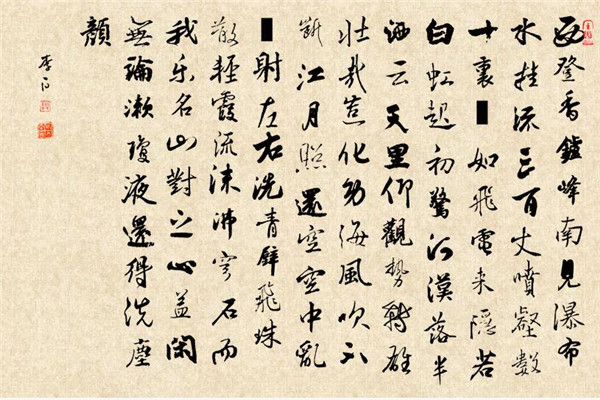 西登香鑪峰南見瀑布
水挂流三百丈噴壑數
十裏▮如飛電来隱若
白虹起初驚河漢落半
洒云天里仰觀勢轉雄
壮哉造化功海風吹不
斷江月照還空空中亂
▮射左右洗青壁飛珠
散輕霞流沫沸穹石而
我乐名山對之心益闲
無論漱瓊液還得洗塵
顏
李白